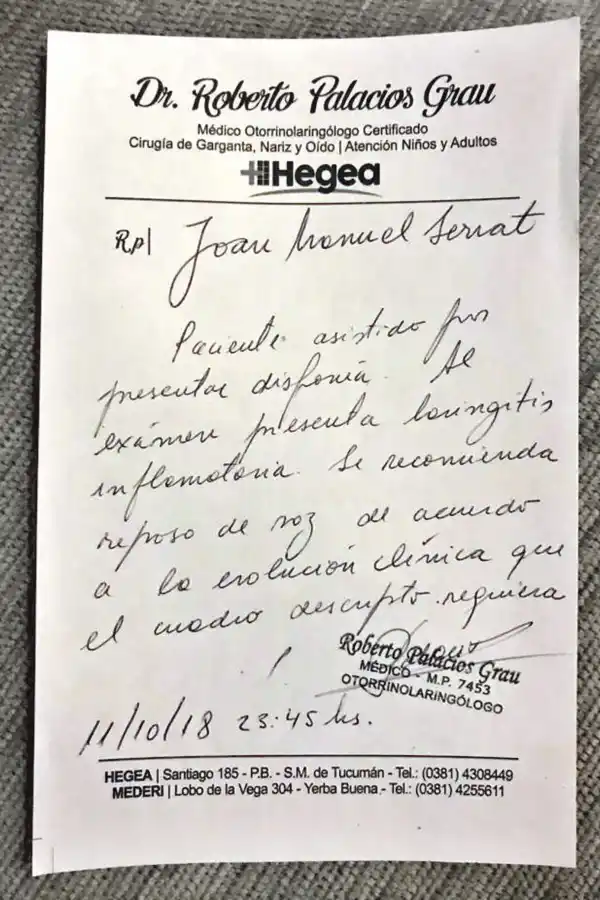 Dr. Roberto Palacios Grau
Médico Otorrinolaringólogo Certificado
Cirugía de Garganta, Nariz y Oído | Atención Niños y Adultos
Hegea
Rp| Joan Manuel Serrat
Paciente asistido por
presentar disfonía. Al
exámen presenta laringitis
inflamatoria. Se recomienda
reposo de voz de acuerdo
a la evolución clínica que
el cuadro descripto requiera
Roberto Palacios Grau
MÉDICO - M.P. 7453
OTORRINOLARINGÓLOGO
11/10/18 23:45 hs.
HEGEA | Santiago 185 - P.B. - S.M. de Tucumán - Tel.: (0381) 4308449
MEDERI | Lobo de la Vega 304 - Yerba Buena - Tel.: (0381) 4255611